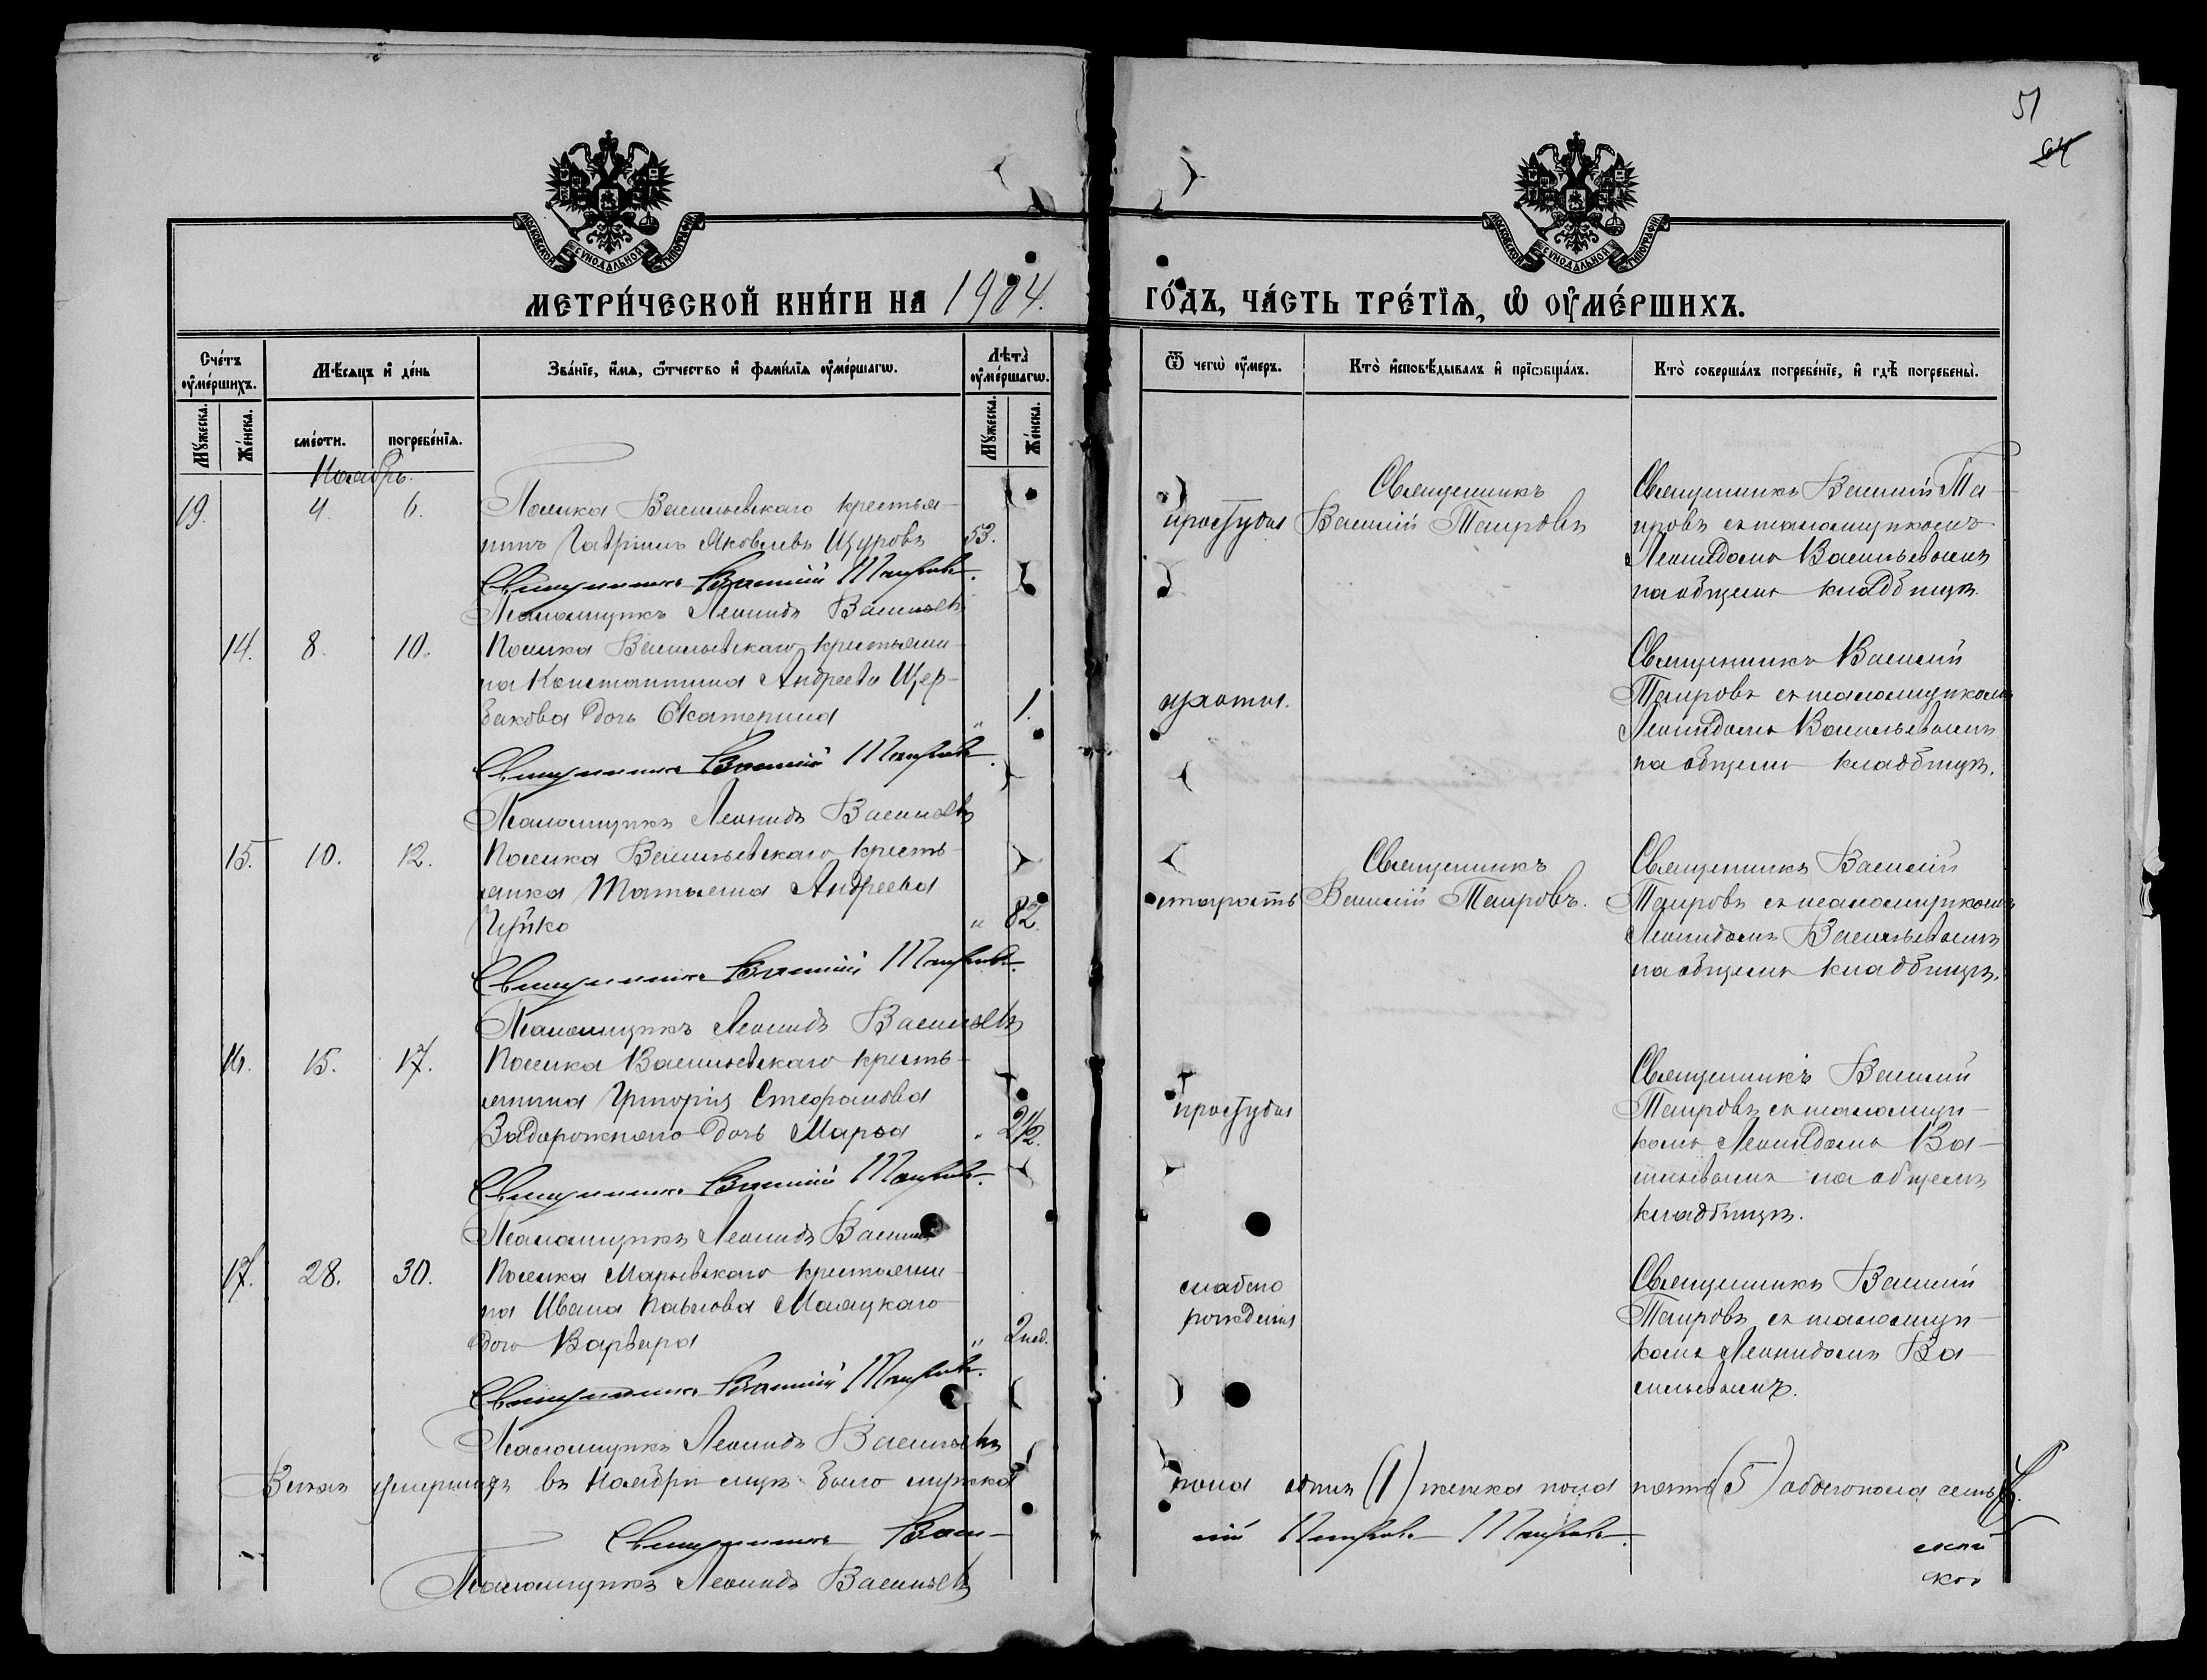 51
64
МОСКОВСКОЙ СѴНОДАЛЬНОЙ ТИПОГРАФІИ
МОСКОВСКОЙ СѴНОДАЛЬНОЙ ТИПОГРАФІИ
МЕТРИ́ЧЕСКОЙ КНИ́ГИ НА 1904.
ГО́ДЪ, ЧА́СТЬ ТРЕ́ТІѦ, Ѡ҆ ОУ҆МЕ́РШИХЪ.
Сче́тъ оу҆ме́ршихъ.
Мꙋ́жеска. Же́нска.
Мѣ́сѧцъ и҆ де́нь
сме́рти. погребе́нїѧ.
Зва́нїе, и҆́мѧ, ѻ҆́тчество и҆ фами́лїѧ оу҆ме́ршагѡ.
Лѣ́та̀ оу҆ме́ршагѡ.
Мꙋ́жеска. Же́нска.
Ѿ чегѡ̀ оу҆́меръ.
Кто̀ и҆сповѣ́дывалъ и҆ прїѡбща́лъ.
Кто̀ соверша́лъ погребе́нїе, и҆ гдѣ̀ погребены̀.
Ноябрь.
19. 4. 6. Поселка Васильевскаго крестья-
нинъ Гавріилъ Яковлевъ Щуровъ 53.
Священникъ Василій Таировъ.
Псаломщикъ Леонидъ Васильевъ
простуда
Священникъ
Василій Таировъ
Священникъ Василій Та-
ировъ съ псаломщикомъ
Леонидомъ Васильевымъ
на общемъ кладбищѣ.
14. 8. 10. Поселка Васильевскаго крестьяни-
на Константина Андреева Щер-
бакова дочь Екатерина " 1.
Священникъ Василій Таировъ.
Псаломщикъ Леонидъ Васильевъ
Священникъ Василій
Таировъ съ псаломщикомъ
Леонидомъ Васильевымъ
на общемъ кладбищѣ.
15. 10. 12. Поселка Васильевскаго кресть-
янка Татьяна Андреева
" 82.
Священникъ Василій Таировъ.
Псаломщикъ Леонидъ Васильевъ
старость
Священникъ
Василій Таировъ.
Священникъ Василій
Таировъ съ псаломщикомъ
Леонидомъ Васильевымъ
на общемъ кладбищѣ.
16. 15. 17. Поселка Васильевскаго кресть-
янина Григорія Стефанова
Задорожнаго дочь Марѳа " 2 1/2.
Священникъ Василій Таировъ.
Псаломщикъ Леонидъ Васильевъ
простуда
Священникъ Василій
Таировъ съ псаломщи-
комъ Леонидомъ Ва-
сильевымъ на общемъ
кладбищѣ.
17. 28. 30. Поселка Марьевскаго крестьяни-
на Ивана Павлова
дочь Варвара " 2 нед.
Священникъ Василій Таировъ.
Псаломщикъ Леонидъ Васильевъ
слабаго
рожденія
Священникъ Василій
Таировъ съ псаломщи-
комъ Леонидомъ Ва-
сильевымъ.
Всѣхъ умершихъ въ Ноябрѣ мцѣ было мужска
пола одинъ (1) женска пола пять (5) обоего пола
Священникъ Васи-
лій Таировъ
Псаломщикъ Леонидъ Васильевъ